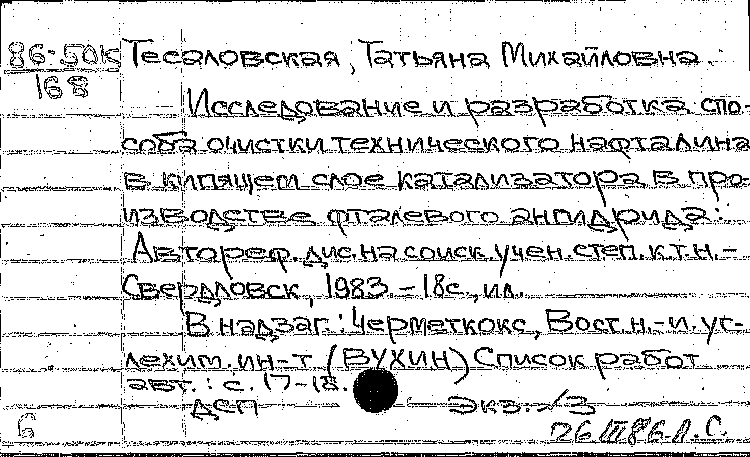 86-50К Тесаловская, Татьяна Михайловна.
168
Исследование и разработка спо-
соба очистки технического нафталина
в кипящем слое катализатора в про-
изводстве фталевого ангидрида:
Автореф. дис. на соиск. учен. степ. к.т.н. –
Свердловск, 1983. – 18с., ил.
В надзаг.: Черметкокс, Вост. н.-и. уг-
лехим. ин-т (ВУХИН) Список работ
авт.: с. 17-18.
ДСП Экз. 13
Б 26 III 86 Л.С.